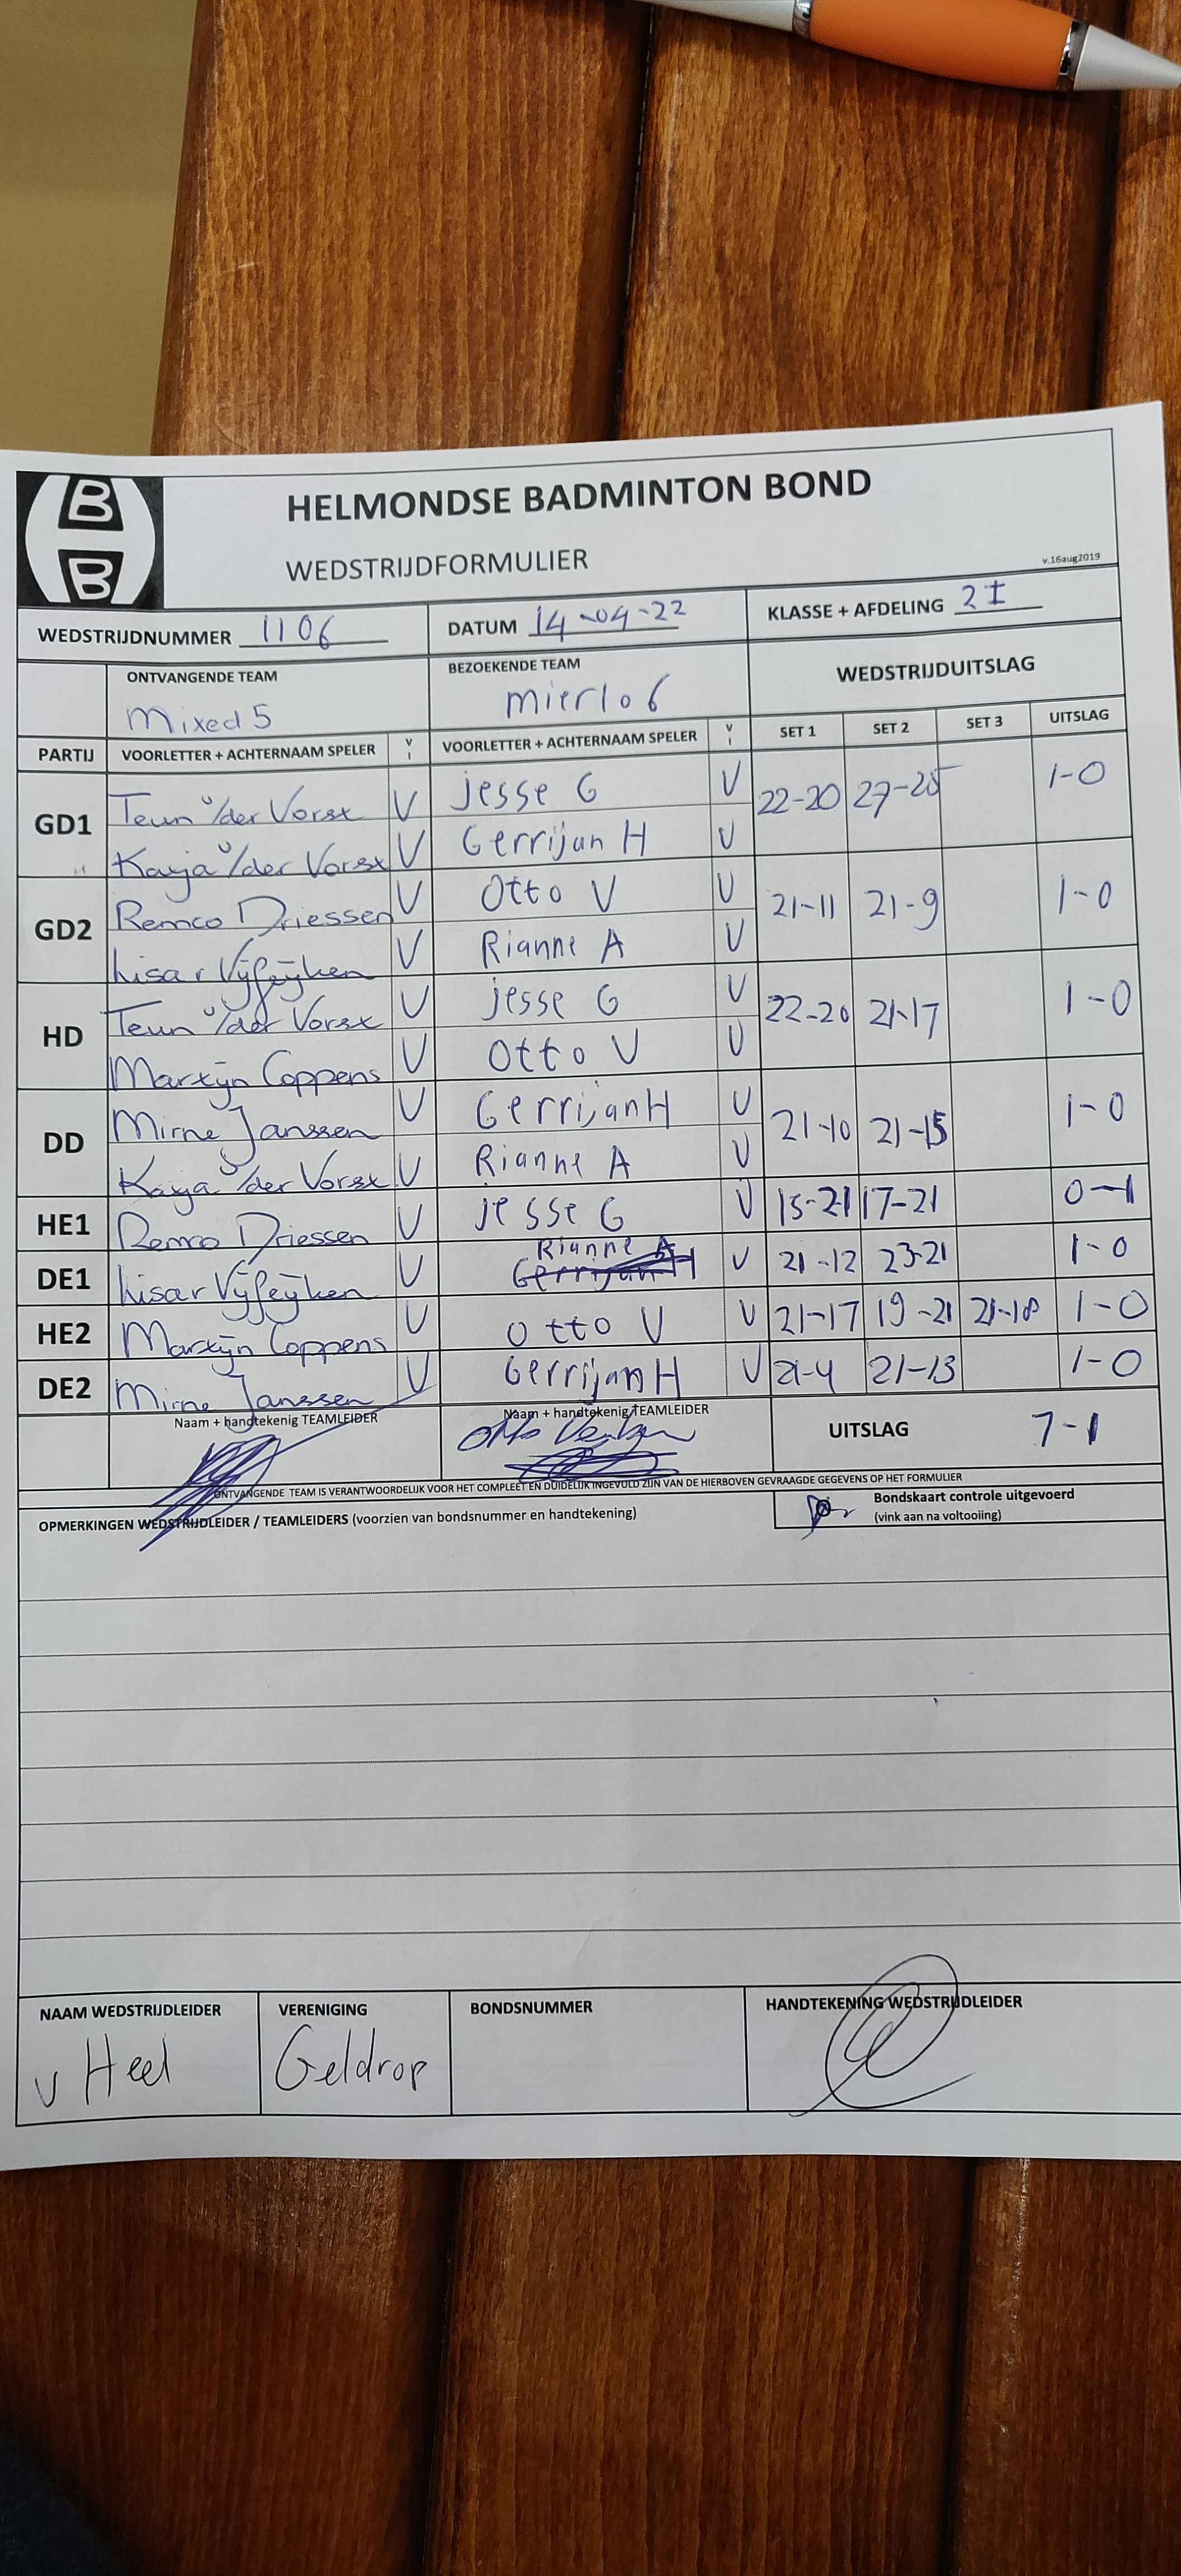 B
B
HELMONDSE BADMINTON BOND
WEDSTRIJDFORMULIER
v.16aug2019
WEDSTRIJDNUMMER 1106 DATUM 14-04-22 KLASSE + AFDELING 2I
ONTVANGENDE TEAM BEZOEKENDE TEAM WEDSTRIJDUITSLAG
Mixed 5 mierlo 6
PARTIJ VOORLETTER + ACHTERNAAM SPELER V I VOORLETTER + ACHTERNAAM SPELER V I SET 1 SET 2 SET 3 UITSLAG
GD1 Teun v/der Vorst V jesse G V 22-20 27-25 1-0
Kayja v/der Vorst V Gerrijan H V
GD2 Remco Driessen V Otto V V 21-11 21-9 1-0
Lisa Vijfeijken V Rianne A V
HD Teun v/der Vorst V jesse G V 22-20 21-17 1-0
Martijn Coppens V Otto V V
DD Mirne Janssen V Gerrijan H V 21-10 21-15 1-0
Kayja v/der Vorst V Rianne A V
HE1 Remco Driessen V jesse G V 15-21 17-21 0-1
DE1 Lisa Vijfeijken V Rianne A V 21-12 23-21 1-0
HE2 Martijn Coppens V Otto V V 21-17 19-21 21-18 1-0
DE2 Mirne Janssen V Gerrijan H V 21-4 21-13 1-0
Naam + handtekenig TEAMLEIDER Naam + handtekenig TEAMLEIDER UITSLAG 7-1
Otto
ONTVANGENDE TEAM IS VERANTWOORDELIJK VOOR HET COMPLEET EN DUIDELIJK INGEVULD ZIJN VAN DE HIERBOVEN GEVRAAGDE GEGEVENS OP HET FORMULIER
OPMERKINGEN WEDSTRIJDLEIDER / TEAMLEIDERS (voorzien van bondsnummer en handtekening) Bondskaart controle uitgevoerd
(vink aan na voltooiing)
NAAM WEDSTRIJDLEIDER VERENIGING BONDSNUMMER HANDTEKENING WEDSTRIJDLEIDER
v Heel Geldrop